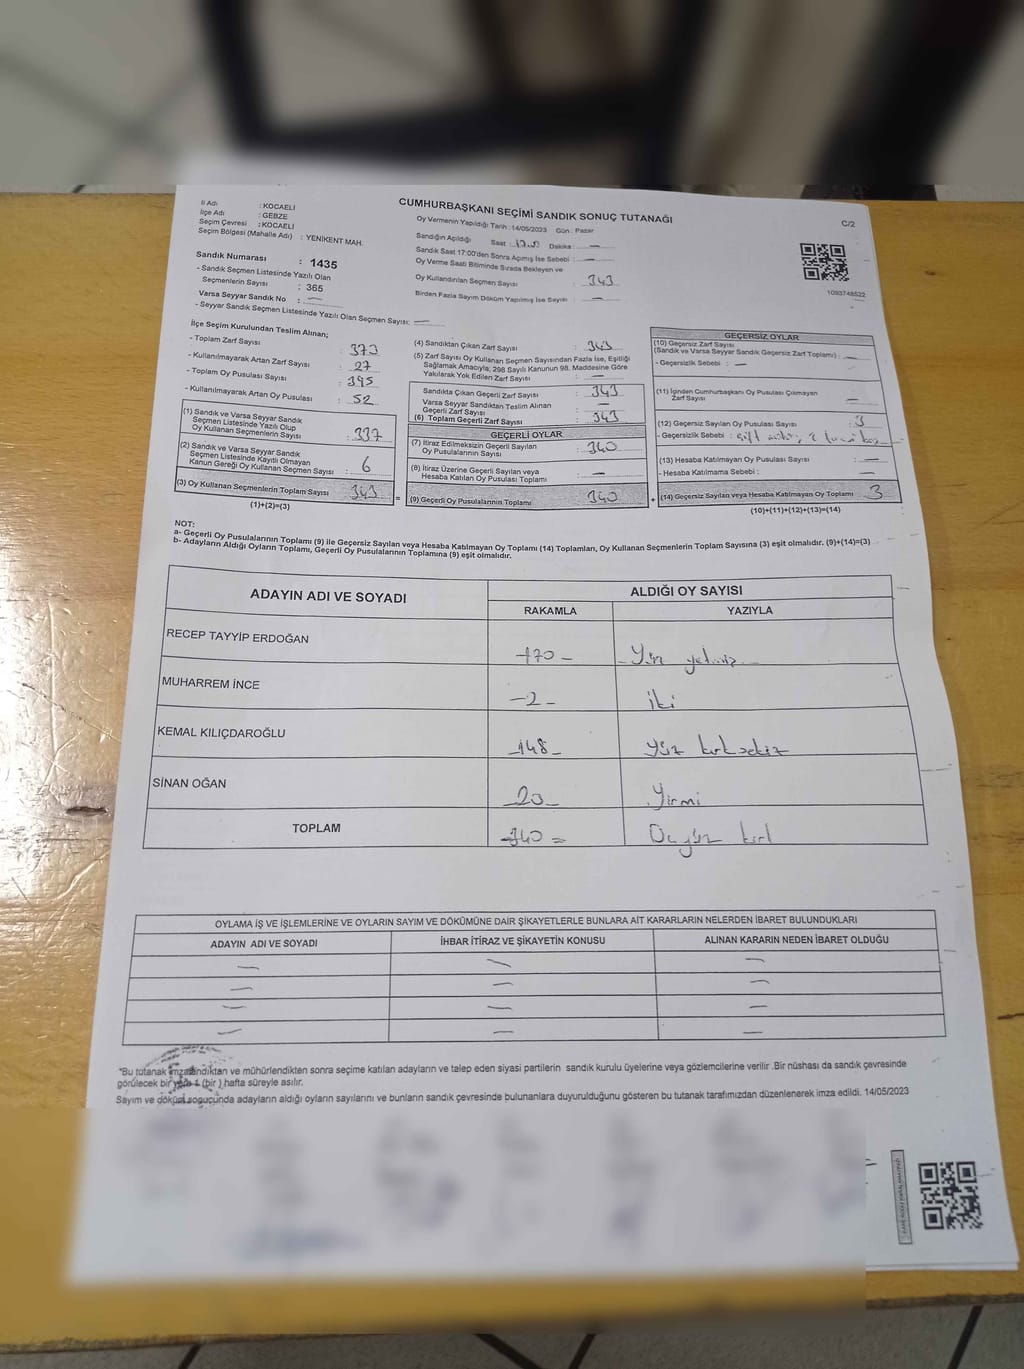 İl Adı : KOCAELİ
İlçe Adı : GEBZE
Seçim Çevresi : KOCAELİ
Seçim Bölgesi (Mahalle Adı) : YENİKENT MAH.
CUMHURBAŞKANI SEÇİMİ SANDIK SONUÇ TUTANAĞI
C/2
Oy Vermenin Yapıldığı Tarih :14/05/2023 Gün : Pazar
Sandığın Açıldığı Saat : Dakika : —
Sandık Saat 17:00'den Sonra Açımış İse Sebebi : —
Oy Verme Saati Bitiminde Sırada Bekleyen ve
Oy Kullandırılan Seçmen Sayısı : 343
Birden Fazla Sayım Döküm Yapılmış İse Sayısı : —
1093748522
Sandık Numarası : 1435
- Sandık Seçmen Listesinde Yazılı Olan
Seçmenlerin Sayısı : 365
Varsa Seyyar Sandık No : —
- Seyyar Sandık Seçmen Listesinde Yazılı Olan Seçmen Sayısı: —
İlçe Seçim Kurulundan Teslim Alınan;
- Toplam Zarf Sayısı : 373
- Kullanılmayarak Artan Zarf Sayısı : 27
- Toplam Oy Pusulası Sayısı : 395
- Kullanılmayarak Artan Oy Pusulası : 52
(1) Sandık ve Varsa Seyyar Sandık
Seçmen Listesinde Yazılı Olup
Oy Kullanan Seçmenlerin Sayısı : 337
(2) Sandık ve Varsa Seyyar Sandık
Seçmen Listesinde Kayıtlı Olmayan
Kanun Gereği Oy Kullanan Seçmen Sayısı : 6
(3) Oy Kullanan Seçmenlerin Toplam Sayısı 343
(1)+(2)=(3)
=
(4) Sandıktan Çıkan Zarf Sayısı : 343
(5) Zarf Sayısı Oy Kullanan Seçmen Sayısından Fazla İse, Eşitliği
Sağlamak Amacıyla; 298 Sayılı Kanunun 98. Maddesine Göre
Yakılarak Yok Edilen Zarf Sayısı : —
Sandıkta Çıkan Geçerli Zarf Sayısı : 343
Varsa Seyyar Sandıktan Teslim Alınan
Geçerli Zarf Sayısı : —
(6) Toplam Geçerli Zarf Sayısı : 343
GEÇERLİ OYLAR
(7) İtiraz Edilmeksizin Geçerli Sayılan
Oy Pusulasının Sayısı : 340
(8) İtiraz Üzerine Geçerli Sayılan veya
Hesaba Katılan Oy Pusulası Toplamı : —
(9) Geçerli Oy Pusulalarının Toplamı 340
+
GEÇERSİZ OYLAR
(10) Geçersiz Zarf Sayısı
(Sandık ve Varsa Seyyar Sandık Geçersiz Zarf Toplamı) : —
- Geçersizlik Sebebi : —
(11) İçinden Cumhurbaşkanı Oy Pusulası Çıkmayan
Zarf Sayısı —
(12) Geçersiz Sayılan Oy Pusulası Sayısı : 3
- Geçersizlik Sebebi : çift
(13) Hesaba Katılmayan Oy Pusulası Sayısı : —
- Hesaba Katılmama Sebebi : —
(14) Geçersiz Sayılan veya Hesaba Katılmayan Oy Toplamı 3
(10)+(11)+(12)+(13)=(14)
NOT:
a- Geçerli Oy Pusulalarının Toplamı (9) ile Geçersiz Sayılan veya Hesaba Katılmayan Oy Toplamı (14) Toplamları, Oy Kullanan Seçmenlerin Toplam Sayısına (3) eşit olmalıdır. (9)+(14)=(3)
b- Adayların Aldığı Oyların Toplamı, Geçerli Oy Pusulalarının Toplamına (9) eşit olmalıdır.
ADAYIN ADI VE SOYADI
ALDIĞI OY SAYISI
RAKAMLA YAZIYLA
RECEP TAYYİP ERDOĞAN -170- Yüz yetmiş
MUHARREM İNCE -2- iki
KEMAL KILIÇDAROĞLU -148- Yüz kırk sekiz
SİNAN OĞAN -20- Yirmi
TOPLAM -340- Üçyüz kırk
OYLAMA İŞ VE İŞLEMLERİNE VE OYLARIN SAYIM VE DÖKÜMÜNE DAİR ŞİKAYETLERLE BUNLARA AİT KARARLARIN NELERDEN İBARET BULUNDUKLARI
ADAYIN ADI VE SOYADI İHBAR İTİRAZ VE ŞİKAYETİN KONUSU ALINAN KARARIN NEDEN İBARET OLDUĞU
— — —
— — —
— — —
— — —
"Bu tutanak imzalandıktan ve mühürlendikten sonra seçime katılan adayların ve talep eden siyasi partilerin sandık kurulu üyelerine veya gözlemcilerine verilir .Bir nüshası da sandık çevresinde
görülecek bir yere 1 (bir ) hafta süreyle asılır.
Sayım ve döküm sonucunda adayların aldığı oyların sayılarını ve bunların sandık çevresinde bulunanlara duyurulduğunu gösteren bu tutanak tarafımızdan düzenlenerek imza edildi. 14/05/2023